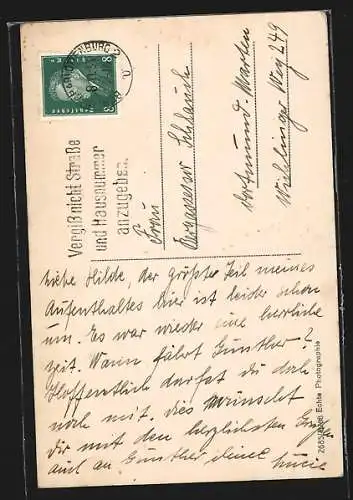 Vergiß nicht Straße
und Hausnummer
anzugeben.
8 8
Frau
Schlauch
Dortmund-Marten
Weg 249
Liebe Hilde, der größte Teil meines
Aufenthaltes hier ist leider schon
um. Es war wieder eine herrliche
Zeit. Wann fährt Günther?
Hoffentlich darfst du doch
noch mit. Dies wünscht
Dir mit den herzlichsten
auch an Günther deine Lucie
Echte Photographie